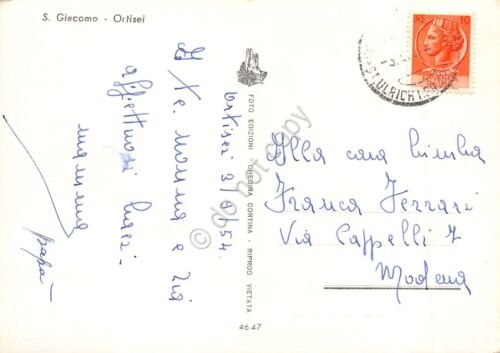 S. Giacomo - Ortisei
Ortisei 3/9/54.
A Te. nonna e zia
affettuosi baci.
mamma
papà
FOTO EDIZIONI GHEDINA CORTINA - RIPROD. VIETATA
46.47
10
ST. ULRICH I.
Alla cara bimba
Franca Ferrari
Via Cappelli 7
Modena
do not copy